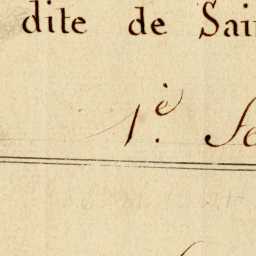 dite de Sai
1è. Se